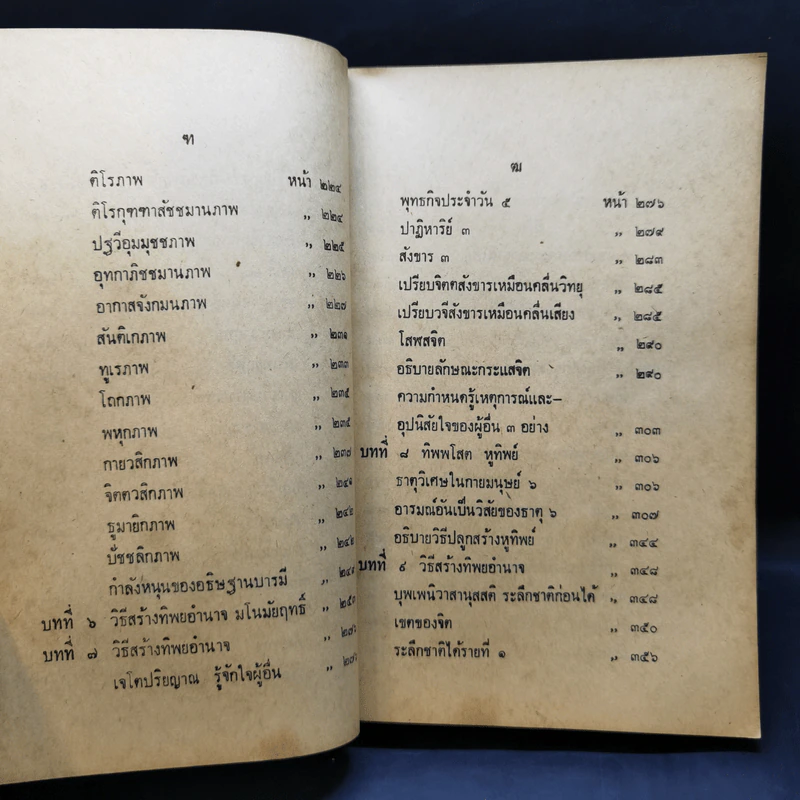 ฑ
ติโรภาพ หน้า ๒๒๔
ติโรกุฑฑาสัชชมานภาพ ,, ๒๒๔
ปฐวีอุมมุชชภาพ ,, ๒๒๕
อุทกาภิชชมานภาพ ,, ๒๒๖
อากาสจังกมนภาพ ,, ๒๒๗
สันติเกภาพ ,, ๒๓๑
ทูเรภาพ ,, ๒๓๓
โถกภาพ ,, ๒๓๕
พหุกภาพ ,, ๒๓๕
กายวสิกภาพ ,, ๒๓๗
จิตตวสิกภาพ ,, ๒๔๑
ธูมายิกภาพ ,, ๒๔๒
บัชชลิกภาพ ,, ๒๔๒
กำลังหนุนของอธิษฐานบารมี ,,
บทที่ ๖ วิธีสร้างทิพยอำนาจ มโนมัยฤทธิ์ ,, ๒๕๓
บทที่ ๗ วิธีสร้างทิพยอำนาจ ,,
เจโตปริยญาณ รู้จักใจผู้อื่น ,,
ฒ
พุทธกิจประจำวัน ๕ หน้า ๒๗๖
ปาฏิหาริย์ ๓ ,, ๒๗๙
สังขาร ๓ ,, ๒๘๓
เปรียบจิตตสังขารเหมือนคลื่นวิทยุ ,, ๒๘๕
เปรียบวจีสังขารเหมือนคลื่นเสียง ,, ๒๘๕
โสฬสจิต ,, ๒๙๐
อธิบายลักษณะกระแสจิต ,, ๒๙๐
ความกำหนดรู้เหตุการณ์และ-
อุปนิสัยใจของผู้อื่น ๓ อย่าง ,, ๓๐๓
บทที่ ๘ ทิพพโสต หูทิพย์ ,, ๓๐๖
ธาตุวิเศษในกายมนุษย์ ๖ ,, ๓๐๖
อารมณ์อันเป็นวิสัยของธาตุ ๖ ,, ๓๐๗
อธิบายวิธีปลูกสร้างหูทิพย์ ,, ๓๔๔
บทที่ ๙ วิธีสร้างทิพยอำนาจ ,, ๓๔๘
บุพเพนิวาสานุสสติ ระลึกชาติก่อนได้ ,, ๓๔๘
เขตของจิต ,, ๓๕๐
ระลึกชาติได้รายที่ ๑ ,, ๓๕๖